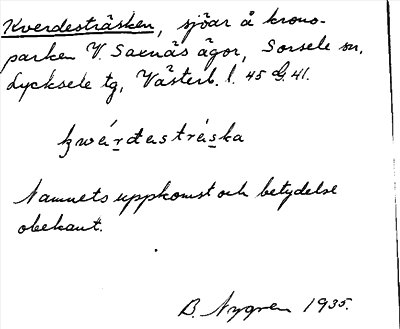 Kverdesträsken, sjöar å krono-
parken V. Saxnäs ägor, Sorsele sn,
Lycksele tg, Västerb. l. 45 G. 41.
kwérdastréska
Namnets uppkomst och betydelse
obekant.
B. Nygren 1935.